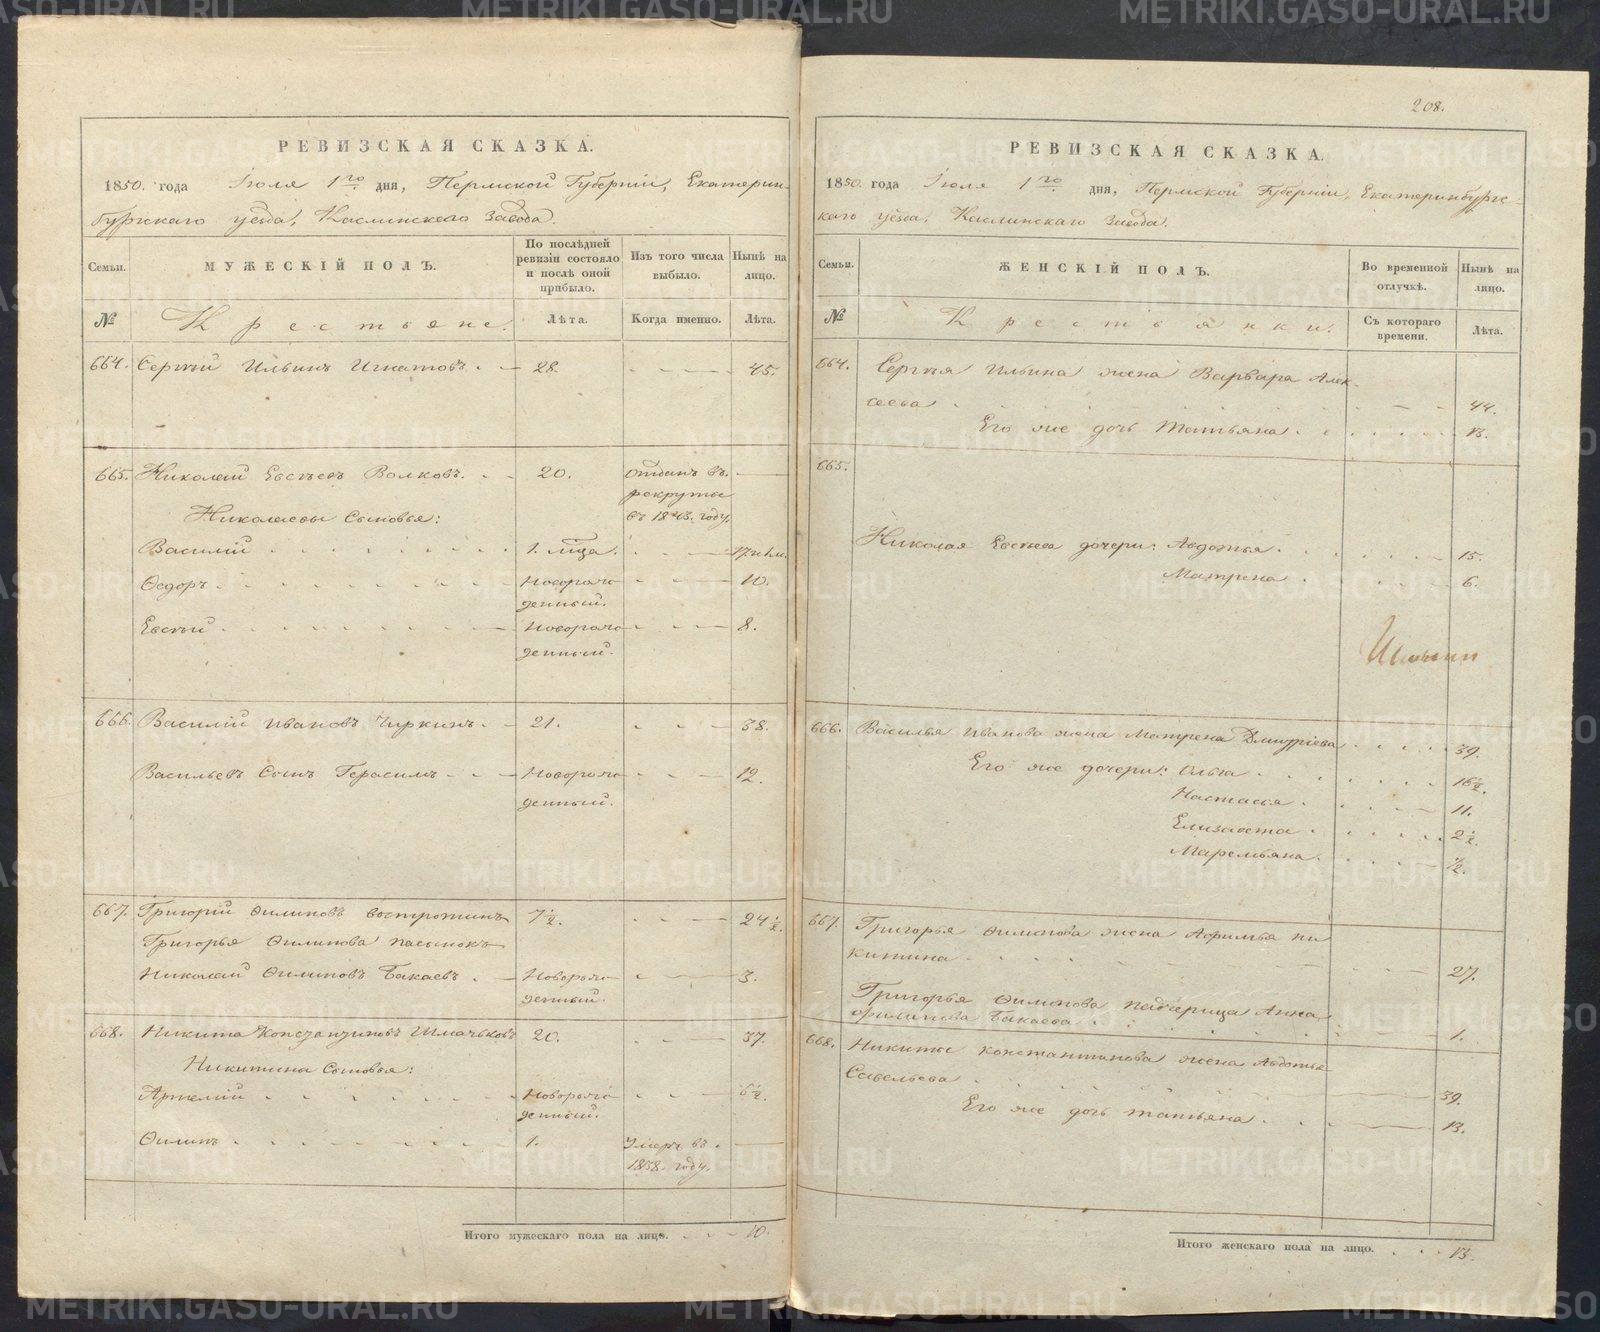 РЕВИЗСКАЯ СКАЗКА.
1850. года Іюля 1го дня, Пермской Губерніи, Екатерин-
бургскаго уѣзда, Каслинскаго Завода.
Семьи.
МУЖЕСКІЙ ПОЛЪ.
По послѣдней
ревизіи состояло
и послѣ оной
прибыло.
Изъ того числа
выбыло.
Нынѣ на
лицо.
№
Крестьяне.
Лѣта.
Когда именно.
Лѣта.
664. Сергѣй Ильинъ Игнатовъ. 28. 45.
665. Николай Евсѣевъ Волковъ. 20. Отданъ въ
рекруты
въ 1843. году.
Николаевы Сыновья:
Василій 1. мѣца. 17 и 1 м.
Ѳедоръ Новорож- 10.
денный.
Евсѣй Новорож- 8.
денный.
666. Василій Ивановъ Чиркинъ. 21. 38.
Васильевъ Сынъ Герасимъ Новорож- 12.
денный.
667. Григорій Ѳилиповъ Востротинъ 7½. 24½.
Григорья Ѳилипова пасынокъ
Николай Ѳилиповъ Бакаевъ. Новорож- 3.
денный.
668. Никита Константиновъ Шмачковъ 20. 37.
Никитина Сыновья:
Артемій Новорож- 6½.
денный.
Ѳилипъ 1. Умеръ въ
1838. году.
Итого мужескаго пола на лицо. 10.
208.
РЕВИЗСКАЯ СКАЗКА.
1850. года Іюля 1го дня, Пермской Губерніи, Екатеринбургс-
каго уѣзда, Каслинскаго Завода.
Семьи.
ЖЕНСКІЙ ПОЛЪ.
Во временной
отлучкѣ.
Нынѣ на
лицо.
№
Крестьянки.
Съ котораго
времени.
Лѣта.
664. Сергѣя Ильина жена Варвара Алек-
сеева 44.
Его же дочь Татьяна. 13.
665.
Николая Евсѣева дочери: Авдотья. 15.
Матрена 6.
666. Василья Иванова жена Матрена Дмитріева 39.
Его же дочери: Ольга 16½.
Настасья 11.
Елизавета 2½.
Маремьяна. ½.
667. Григорья Ѳилипова жена Афимья Ни-
китина 27.
Григорья Ѳилипова падчерица Анна
Ѳилипова Бакаева. 1.
668. Никиты Константинова жена Авдотья
Савельева 39.
Его же дочь Татьяна 13.
Итого женскаго пола на лицо. 13.
METRIKI.GASO-URAL.RU